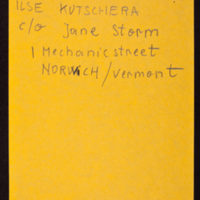 ILSE KUTSCHERA
c/o Jane Storm
1 Mechanic street
NORWICH / Vermont